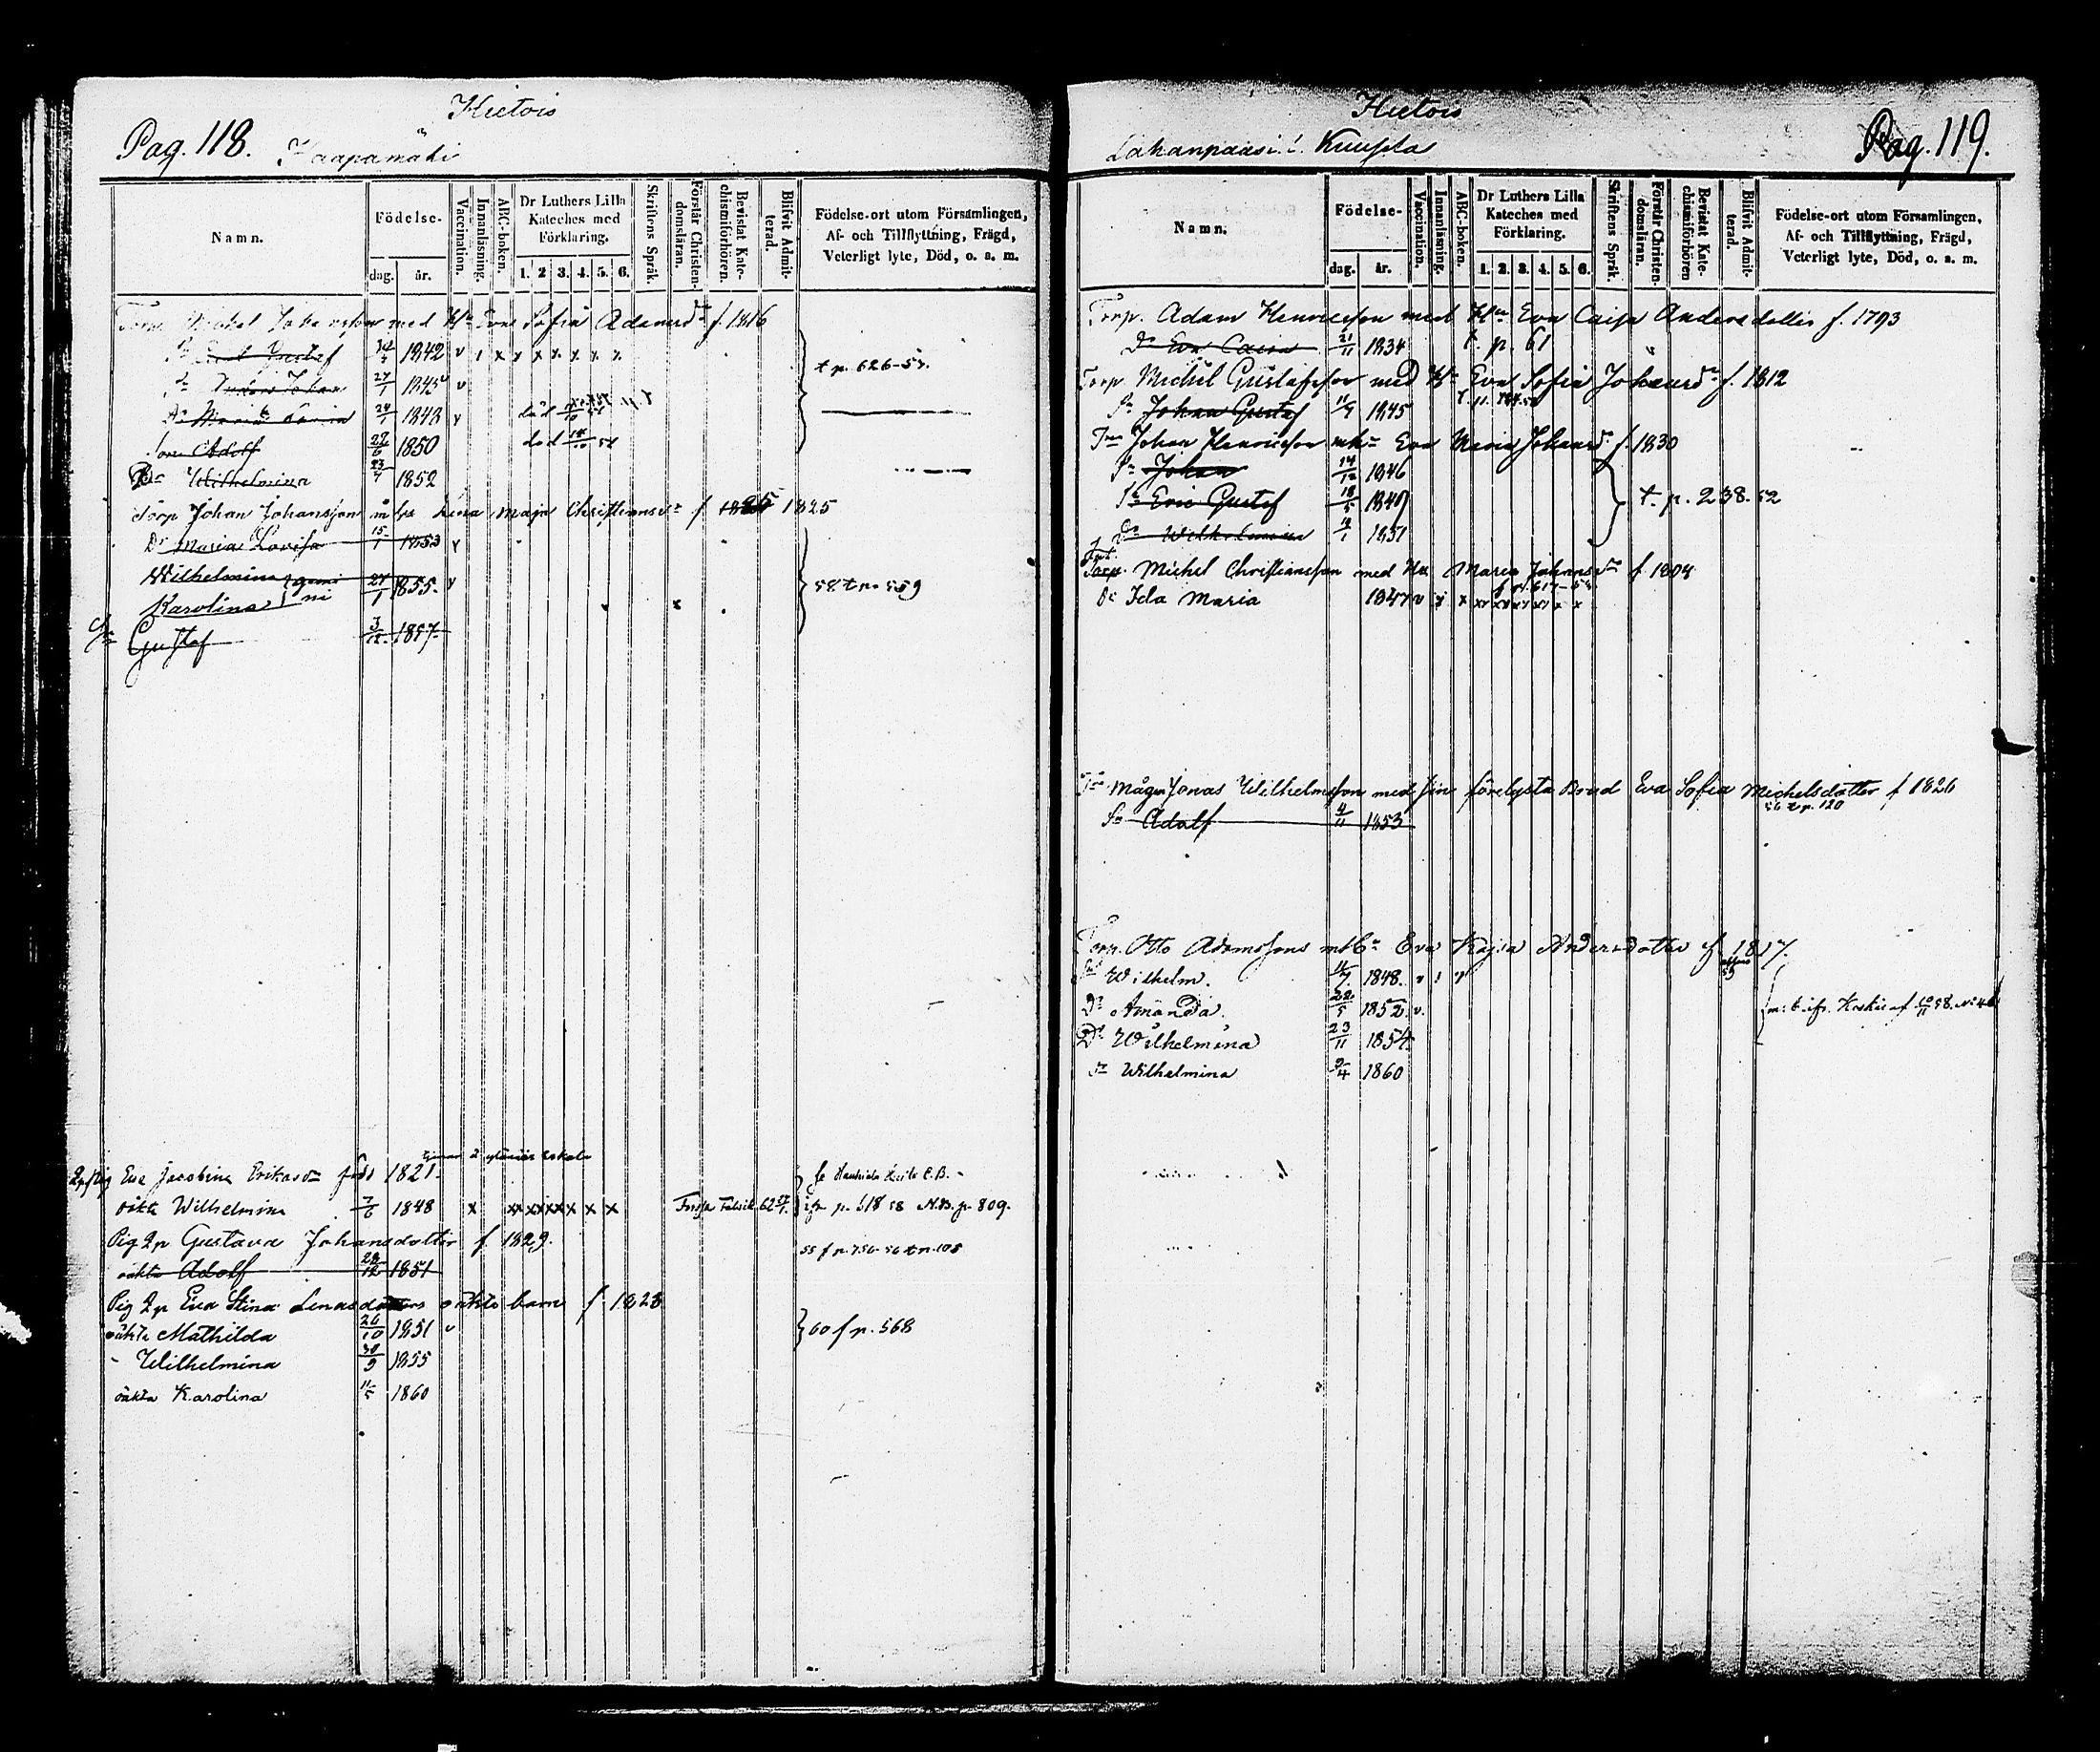 Hietois
Pag. 118. Haapamäki
Namn.
Födelse-
dag. år.
Vaccination.
Innanläsning.
ABC-boken.
Dr Luthers Lilla Kateches med Förklaring.
1. 2 3. 4. 5. 6.
Skriftens Språk.
Förstår Christen-domsläran.
Bevistat Kate-chismiförhören.
Blifvit Admit-terad.
Födelse-ort utom Församlingen, Af- och Tillflyttning, Frägd, Veterligt lyte, Död, o. s. m.
Torp. Michel Johansson med Hu Eva Sofia Adamsdr f. 1816
Gustaf 1842 v
t p. 626-57.
Johan 27/1 1845 v
Dr Maria 24/1 1848 v död
Son Adolf 28/6 1850 död
Dr Wilhelmina 23/7 1852
Torp Johan Johansson m hu Lena Maja Christiansdr f 1825 1825
Dr Maria Lovisa 15/1 1853 v
Wilhelmina 27/1 1855 v
Karolina
58 t p. 559
Sn Gustaf 3/12 1857
Eva Jacobina Eriksdr född 1821.
oäkta Wilhelmina 7/6 1848 x xx xx xx x x x Forssa Fabrik 62 p. 618 58 N.B. p. 809.
Pig Gustava Johansdotter f. 1829.
55 f p. 756- 56 t p. 108
oäkta Adolf 28/12 1851
Pig Eva Stina Lenasdotters oäkta barn f 1828
oäkta Mathilda 26/10 1851 v
60 f p. 568
- Wilhelmina 30/9 1855
oäkta Karolina 11/5 1860
Hietois
Lahanpaasi. Kuusela
Pag. 119.
Namn.
Födelse-
dag. år.
Vaccination.
Innanläsning.
ABC-boken.
Dr Luthers Lilla Kateches med Förklaring.
1. 2. 3. 4. 5. 6.
Skriftens Språk.
Förstår Christen-domsläran.
Bevistat Kate-chismiförhören
Blifvit Admit-terad.
Födelse-ort utom Församlingen, Af- och Tillflyttning, Frägd, Veterligt lyte, Död, o. s. m.
Torp. Adam Henricsson med Hu Eva Caisa Andersdotter f. 1793
Dr Eva Caisa 21/11 1834 t. p. 61
Torp Michel Gustafsson med Hu Eva Sofia Johansdr f. 1812
Sn Johan Gustaf 11/7 1845
Johan Henricsson m hu Eva Maria Johansdr f. 1830
Sn Johan 14/12 1846
Sn Eric Gustaf 18/5 1849
t. p. 238. 52
Dr Wilhelmina 1851
Torp. Michel Christiansson med Hu Maria Johansdr f 1804
f. p. 617-54
Dr Ida Maria 1847 v x x xx xx xx xx x x
Mågen Jonas Wilhelmsson med sin förelysta Brud Eva Sofia Michelsdotter f 1826
56 t p. 120
Sn Adolf 4/11 1853
Torp. Otto Adamssons m hu Eva Kajsa Andersdotter f 1817.
Sn Wilhelm. 11/7 1848. v
Dr Amanda. 22/5 1852. v.
m. b. ifr. Koskis af 10/11 58. No 46
Dr Wilhelmina 23/11 1854
Dr Wilhelmina 9/4 1860